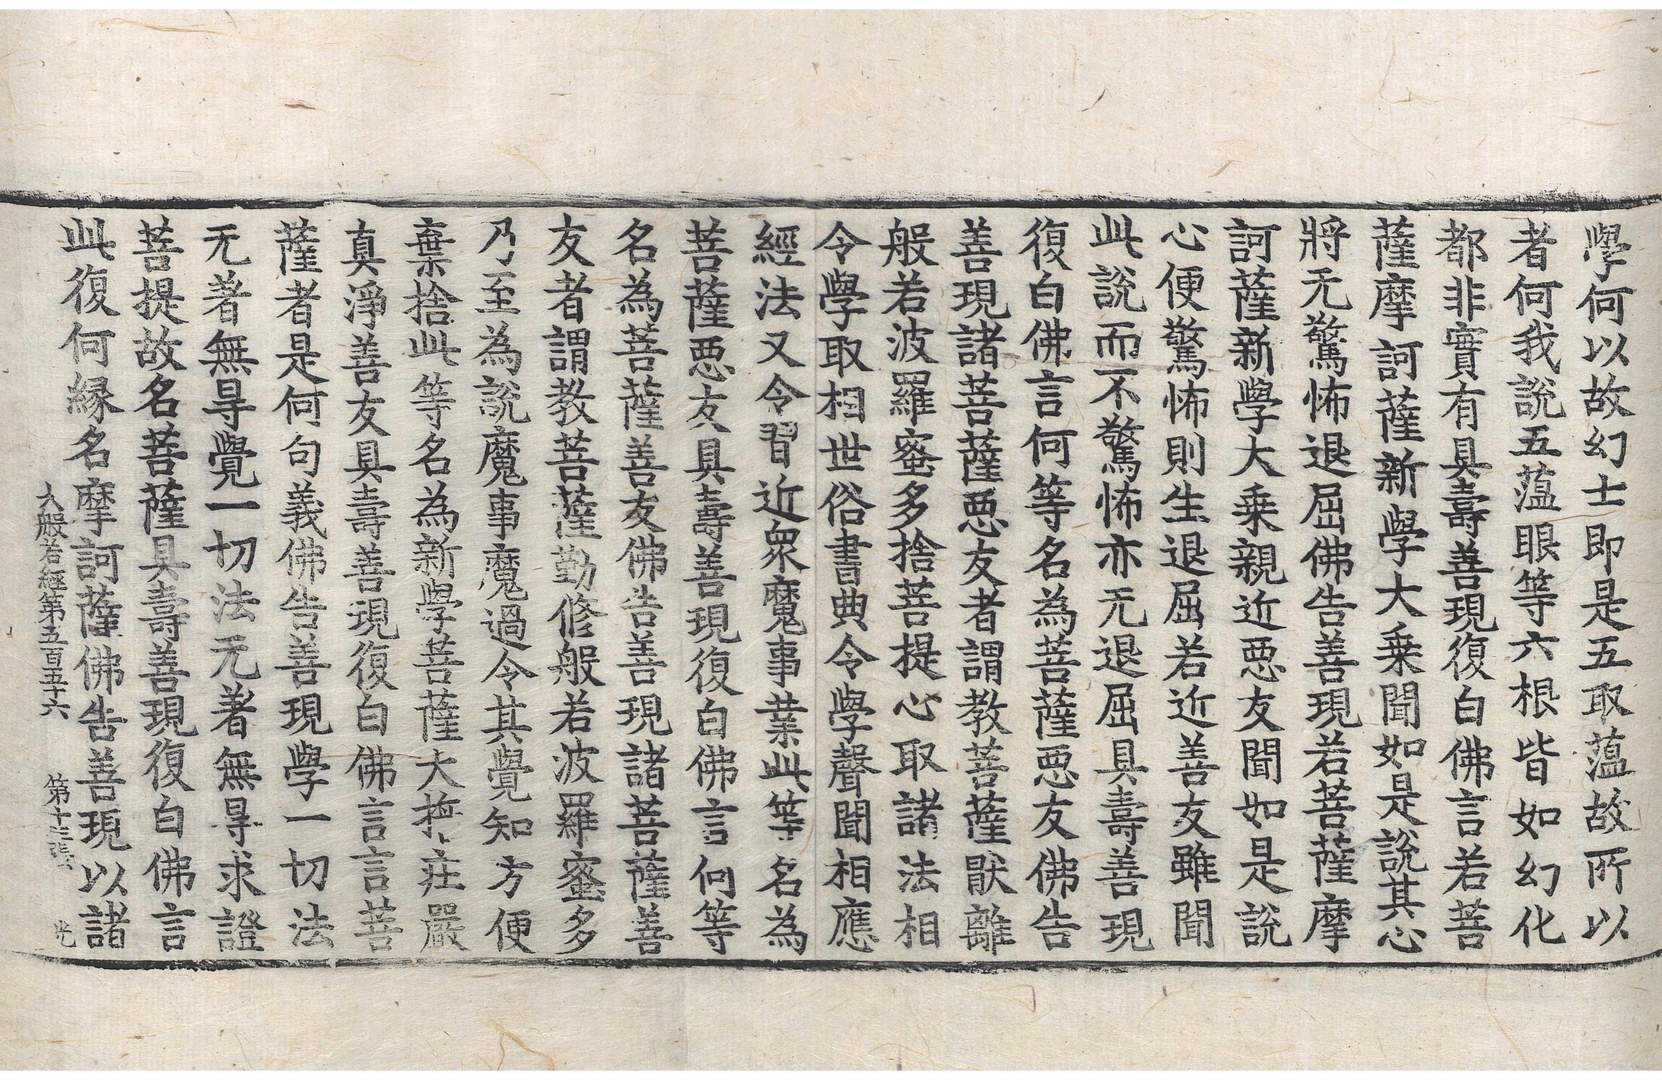 學何以故幻士即是五取薀故所以
者何我說五薀眼等六根皆如幻化
都非實有具壽善現復白佛言若菩
薩摩訶薩新學大乗聞如是說其心
將无驚怖退屈佛告善現若菩薩摩
訶薩新學大乗親近悪友聞如是說
心便驚怖則生退屈若近善友雖聞
此說而不驚怖亦无退屈具壽善現
復白佛言何等名為菩薩悪友佛告
善現諸菩薩悪友者謂教菩薩猒離
般若波羅蜜多捨菩提心取諸法相
令學取相世俗書典令學聲聞相應
經法又令習近衆魔事業此等名為
菩薩悪友具壽善現復白佛言何等
名為菩薩善友佛告善現諸菩薩善
友者謂教菩薩勤修般若波羅蜜多
乃至為說魔事魔過令其覺知方便
棄捨此等名為新學菩薩大莊嚴
真淨善友具壽善現復白佛言言菩
薩者是何句義佛告善現學一切法
无著無㝵覺一切法无著無㝵求證
菩提故名菩薩具壽善現復白佛言
此復何縁名摩訶薩佛告善現以諸
大般若經第五百五十六 第十三張 光